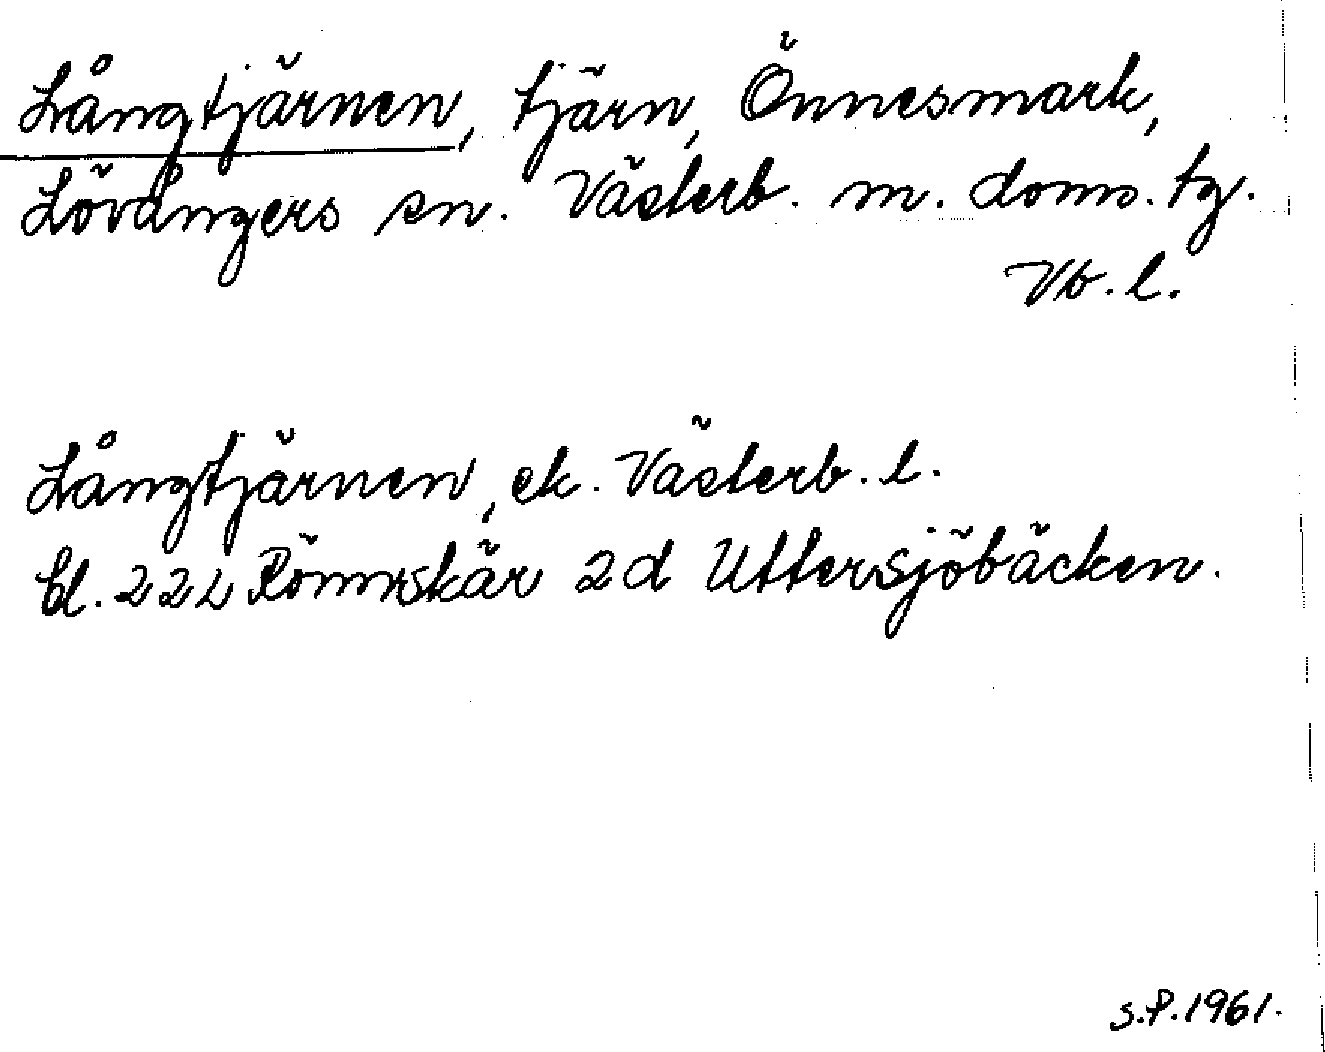 Långtjärnen, tjärn, Önnesmark,
Lövångers sn. Västerb. m. doms. tg.
Vb. l.
Långtjärnen, ek. Västerb. l.
bl. 22L Rönnskär 2d Uttersjöbäcken.
S.P. 1961.